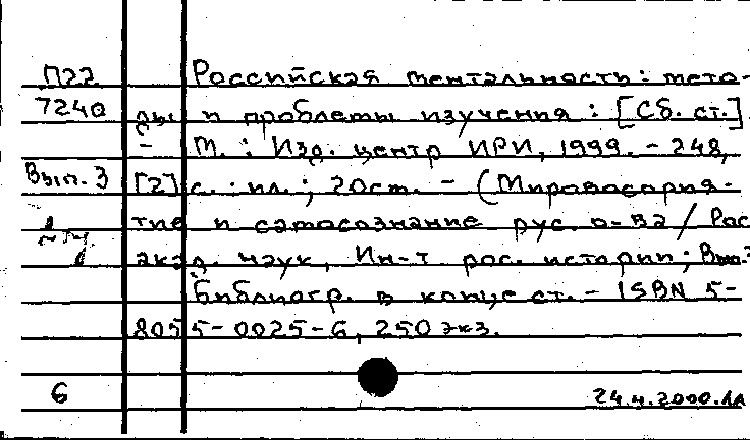 П22 Российская ментальность: мето-
7240 ды и проблемы изучения: [Сб. ст.]
– М.: Изд. центр ИРИ, 1999. – 248,
Вып. 3 [2] с.: ил.; 20см. – (Мировосприя-
тие и самосознание рус. о-ва / Рос
акад. наук, Ин-т рос. истории; Вып. 3
Библиогр. в конце ст. – ISBN 5-
8055-0025-6, 250 экз.
6 24.4.2000.